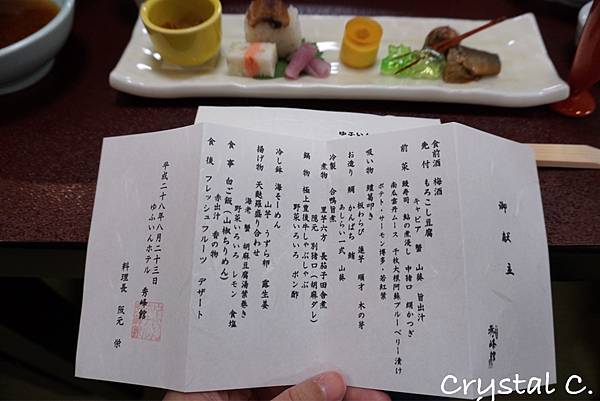 御献立
秀峰館
食前酒 梅酒
先付 もろこし豆腐
キャビア 蟹 山葵 旨出汁
前菜 鰻寿司 鮎の煮浸し 中猪口 鯛かつぎ
南瓜雲丹ムース 千枚大根阿蘇ブルーベリー漬け
ポテト・サーモン博多・若紅葉
吸い物 鱧葛叩き
板わらび 蓮芋 順才 木の芽
お造り 鯛 かんぱち 鮪
あしらい一式 山葵
冷製 合鴨旨煮
煮物 里芋六方 長茄子田舎煮
隠元 別猪口(胡麻ダレ)
鍋物 極上豊後牛しゃぶしゃぶ
野菜いろいろ ポン酢
冷し鉢 海そーめん
山芋 うずら卵 露生姜
揚げ物 天麩羅盛り合わせ
海老 蟹 胡麻豆腐湯葉巻き
野菜いろいろ レモン 食塩
食事 白ご飯(山椒ちりめん)
赤出汁 香の物
食後 フレッシュフルーツ デザート
平成二十八年八月二十三日
ゆふいんホテル
秀峰館
料理長 阪元 栄
Crystal C.